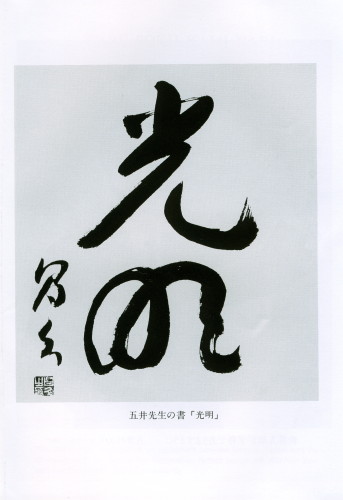 光明
昌久
五井先生の書「光明」